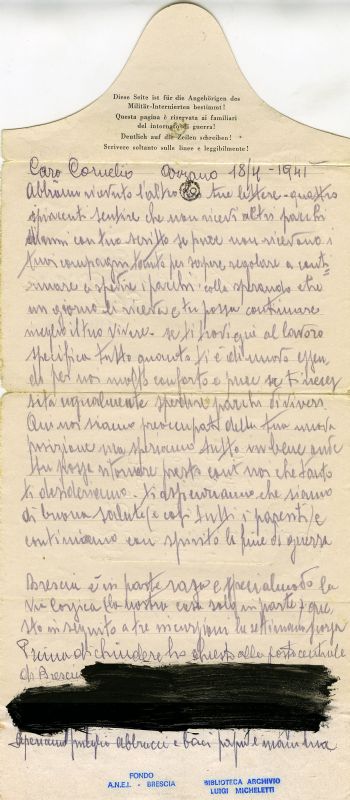 Diese Seite ist für die Angehörigen des
Militär-Internierten bestimmt!
Questa pagina è riservata ai familiari
dell'internato di guerra!
Deutlich auf die Zeilen schreiben!
Scrivere soltanto sulle linee e leggibilmente!
Caro Cornelio 18/4-1945
Abbiamo ricevuto l'altro tue lettere - questro
spiacenti sentire che non ricevi altri pacchi
con tuo scritto se pure non ricevano i
tuoi compagni tanto per sapere regolare a conti=
nuare a spedire i pacchi colla speranza che
un giorno li riceva e tu possa continuare
meglio il tuo vivere. se ti trovi già al lavoro
specifica tutto quanto ti è di nuovo essen
do per noi molto conforto e pure se ti
ugualmente spedire pacchi di viveri
noi siamo preoccupati della tua nuova
posizione ma speriamo tutto in bene
tu possa ritornare presto con noi che tanto
ti desideriamo. ti assicuriamo che siamo
di buona salute (e così tutti i parenti) e
continuiamo con spirito la fine di guerra
Brescia è in parte rasa e specialmente la
Via Corsica (la nostra casa solo in parte) que
sto in seguito a tre incursioni la settimana scorsa
Prima di chiudere ho chiesto alla posta centrale
di Brescia
Speriamo abbracci e baci papà e mamma
FONDO
A.N.E.I. - BRESCIA
BIBLIOTECA ARCHIVIO
LUIGI MICHELETTI